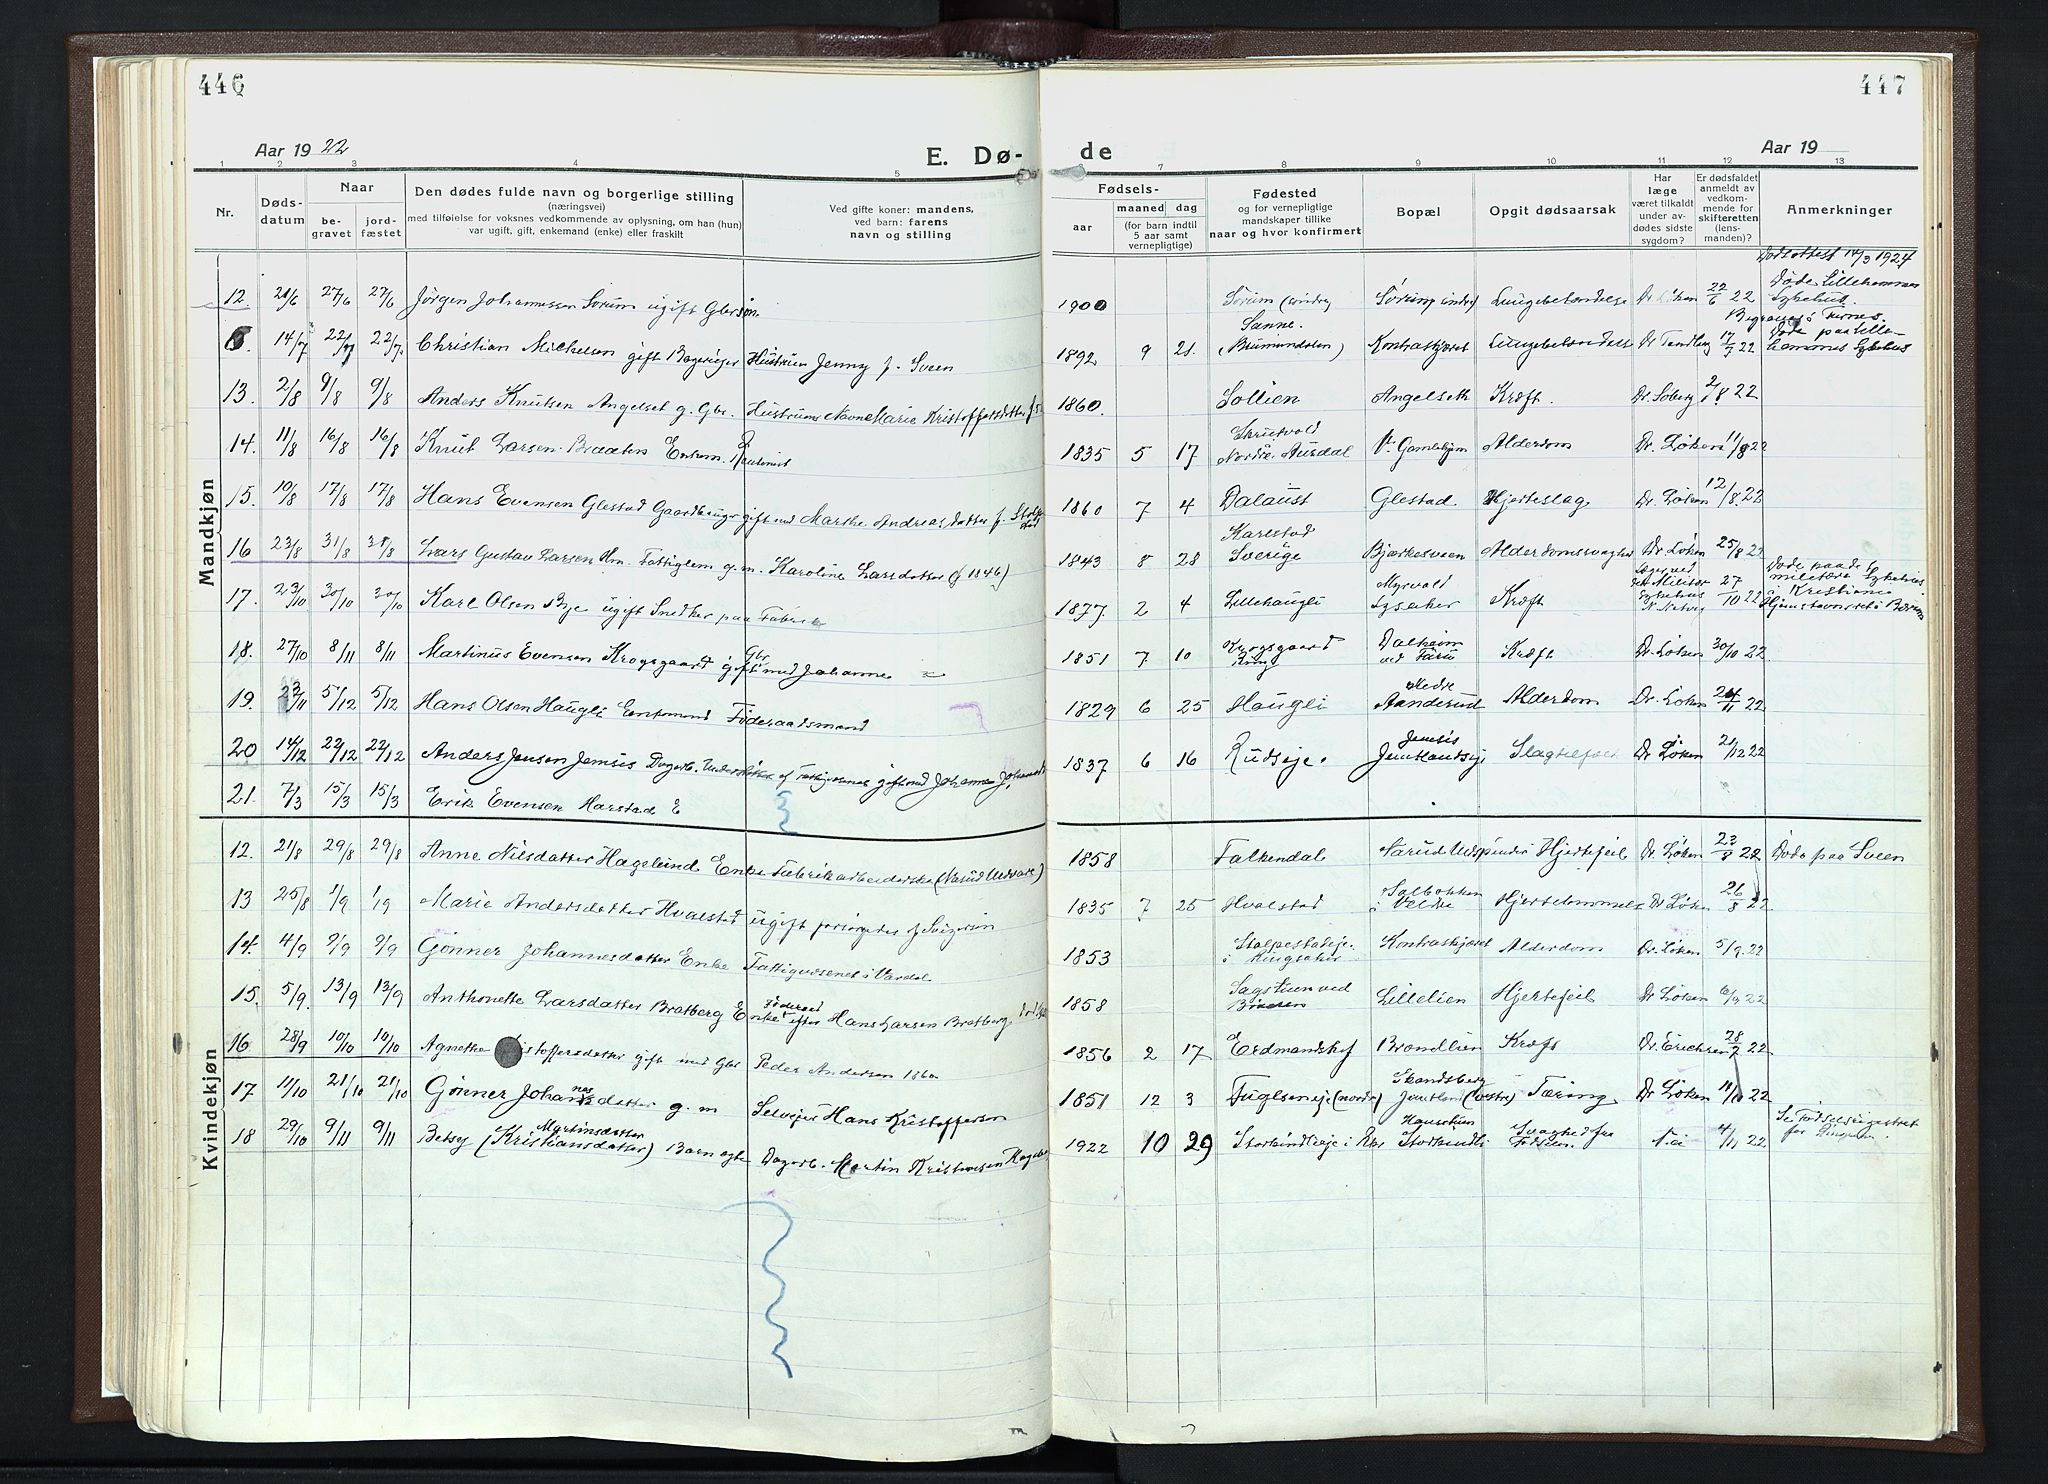 446
447
Aar 1922
E. Dø-
de
Aar 19
1 2 3 4 5 6 7 8 9 10 11 12 13
Nr.
Døds-
datum
Naar
be-
gravet
jord-
fæstet
Den dødes fulde navn og borgerlige stilling
(næringsvei)
med tilføielse for voksnes vedkommende av oplysning, om han (hun)
var ugift, gift, enkemand (enke) eller fraskilt
Ved gifte koner: mandens,
ved barn: farens
navn og stilling
Fødsels-
aar
maaned
dag
(for barn indtil
5 aar samt
vernepligtige)
Fødested
og for vernepligtige
mandskaper tillike
naar og hvor konfirmert
Bopæl
Opgit dødsaarsak
Har
læge
været tilkaldt
under av-
dødes sidste
sygdom?
Er dødsfaldet
anmeldt av
vedkom-
mende for
skifteretten
(lens-
manden)?
Anmerkninger
Mandkjøn
Dødsattest 14/3 1924
12. 21/6 27/6 27/6 Jørgen Johannessen Sørum ugift Gbr.søn 1900 Sørum (søndre) Sørum søndre Lungebetændelse Dr. Løken 22/6 22 Døde Lillehammer Sykehus.
Begravet i Furnes.
6. 14/7 22/7 22/7 Christian Michelsen gift Bagerieier Hustruen Jenny f. Sveen 1892 9 21. Sanne. (Brumundalen) Kontraskjæret Lungebetændelse Dr Tandberg 17/7 22 Døde paa Lille-
hammer Sykehus
13. 2/8 9/8 9/8 Anders Knutsen Angelset g. Gbr. Hustruens Navn Marie Kristoffersdatter 1860. Sollien Angelseth Kræft. Dr. Soberg 2/8 22
14. 11/8 16/8 16/8 Knut Larsen Braaten Enkem. 1835 5 17 Skrutvold Nordre Ausdal V. Gamlehjem Alderdom Dr. Løken 11/8 22
15. 10/8 17/8 17/8 Hans Evensen Glestad Gaardbruger gift med Marthe Andreasdatter f. 1860 7 4 Dalaust Glestad Hjerteslag Dr. Løken 12/8 22
16 23/8 31/8 31/8 Lars Gustav Larsen Hm. Fattiglem g. m. Karoline Larsdatter (f 1846) 1843 8 28 Karlstad Sverige Bjørkesveen Alderdomssvaghet Dr. Løken 25/8 22
17. 23/10 30/10 30/10 Karl Olsen Bye ugift Snedker paa Fabrik 1877 2 4 Lillehaugli Myrvold Lysaker Kræft Læger ved det Militær Sykehus 27/10 22 Døde paa det militære Sykehus Kristiania
18. 27/10 8/11 8/11 Martinus Evensen Krogsgaard Gbr gift med Johanne 1851 7 10 Krogsgaard Ring Dalheim ved Taru Kræft Dr. Løken 30/10 22.
19. 5/12 5/12 Hans Olsen Haugli Enkemand Føderaadsmand 1829 6 25 Haugli Nedre Aanderud Alderdom Dr. Løken 24/11 22
20 14/12 22/12 22/12 Anders Jensen Jemsis Dagarb. Understøttet af Fattigvesenet gift med Johanne Johannesd 1837 6 16 Rudseje. Jemsis Jemtlandseje Slagtilfælde Dr Løken 21/12 22
21. 7/3 15/3 15/3 Erik Evensen Harstad E
Kvindekjøn
12. 21/8 29/8 29/8 Anne Nilsdatter Hagelund Enke Fabrikarbeiderske (Narud Uldvare) 1858 Falkendal Narud Uldspinderi Hjertefeil Dr. Løken 23/8 22 Døde paa Sveen
13 25/8 1/9 1/9 Marie Andersdatter Hvalstad ugift forsørgedes af Svigersøn 1835 7 25 Hvalstad Solbakken i Veldre Hjertelammelse Dr. Løken 26/8 22
14. 4/9 9/9 9/9 Gønner Johannesdatter Enke Fattigvæsenet i Vardal 1853 Stolpestadeje. i Ringsaker Kontraskjæret Alderdom Dr. Løken 5/9 22
15. 5/9. 13/9 13/9 Anthonette Larsdatter Bratberg Enke efter Føderaad Hans Larsen Bratberg 1858 Sagstuen ved Bröttum Lillelien Hjertefeil Dr Løken 6/9 22
16 28/9 10/10 10/10 Agnethe istoffersdatter gift med Gbr Peder Andersen 1860 1856 2 17 Erdmandshof Brandlien Kræft Dr. Erichsen 28/9 22
17 11/10 21/10 21/10 Gønner Johannesdatter g. m Selveier Hans Kristofferson 1851 12 3 Fuglseneje (nordr) Skandsberg Jemtland (vestre) Tæring Dr Løken 11/10 22
18 29/10 9/11 9/11 Betsy (Kristiansdatter) Martinsdatter Barn egte Dagarb. Martin Kristiansen 1922 10 29 Storlundlieje i Rks Haustuen Storlundli Svaghed fra Fødselen. Nei 4/11 22 Se Fødselsregistret